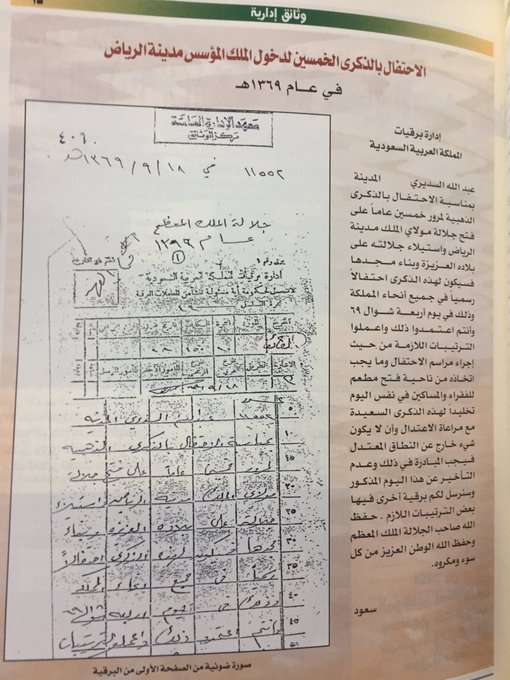 وثائق إدارية
الاحتفال بالذكرى الخمسين لدخول الملك المؤسس مدينة الرياض
في عـــام ١٣٦٩هـ
إدارة برقيات
المملكة العربية السعودية
عبد الله السديري المدينة
بمناسبة الاحتفال بالذكرى
الذهبية لمرور خمسين عاماً على
فتح جلالة مولاي الملك مدينة
الرياض واستيلاء جلالته على
بلاده العزيزة وبناء مجدها
فسيكون لهذه الذكرى احتفالاً
رسمياً في جميع أنحاء المملكة
وذلك في يوم أربعة شوال ٦٩
وأنتم اعتمدوا ذلك واعملوا
الترتيبات اللازمة من حيث
إجراء مراسم الاحتفال وما يجب
اتخاذه من ناحية فتح مطعم
للفقراء والمساكين في نفس اليوم
تخليدا لهذه الذكرى السعيدة
مع مراعاة الاعتدال وأن لا يكون
شيء خارج عن النطاق المعتدل
فيجب المبادرة في ذلك وعدم
التأخير عن هذا اليوم المذكور
وسنرسل لكم برقية أخرى فيها
بعض الترتيبات اللازم . حفظ
الله صاحب الجلالة الملك المعظم
وحفظ الله الوطن العزيز من كل
سوء ومكروه.
سعود
معهد الإدارة العامة
مركز الوثائق
١١٥٥٢ في ١٨/٩/١٣٦٩هـ
جلالة الملك المعظم
إدارة برقيات المملكة العربية السعودية
عبد الله السديري المدينة
بمناسبة الاحتفال بالذكرى الذهبية
لمرور خمسين عاماً على فتح جلالة
مولاي الملك مدينة الرياض واستيلاء
جلالته على بلاده العزيزة وبناء
مجدها فسيكون لهذه الذكرى احتفالاً
رسمياً في جميع أنحاء المملكة
وذلك في يوم أربعة شوال ٦٩
وأنتم اعتمدوا ذلك واعملوا الترتيبات
صورة ضوئية من الصفحة الأولى من البرقية